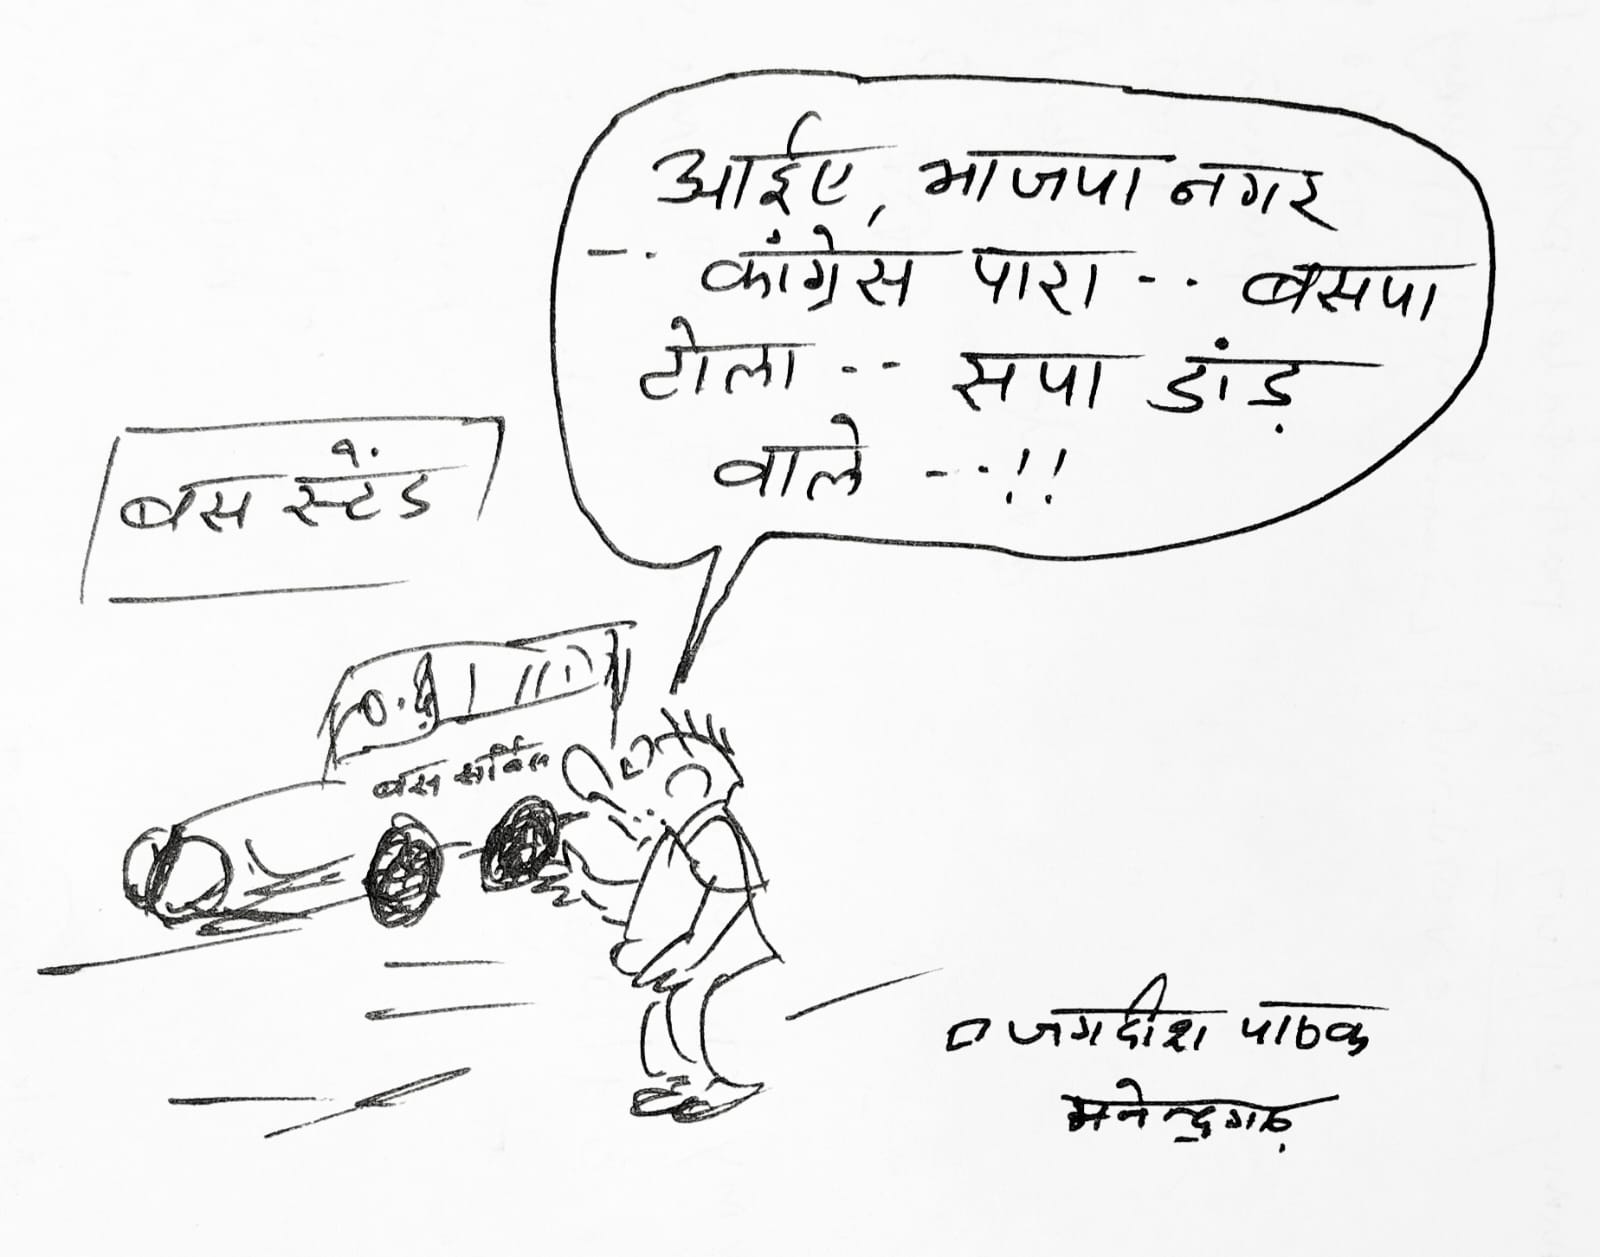 आईए, भाजपा नगर
-- कांग्रेस पारा -- बसपा
टोला -- सपा डांड़
वाले --!!
बस स्टेंड
बस सर्विस
जगदीश पाठक
मनेन्द्रगढ़